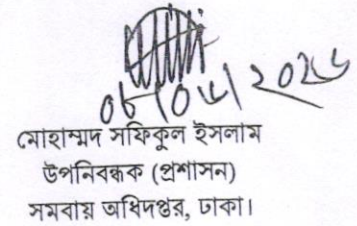 ০৮/০৬/২০২৬
মোহাম্মদ সফিকুল ইসলাম
উপনিবন্ধক (প্রশাসন)
সমবায় অধিদপ্তর, ঢাকা।